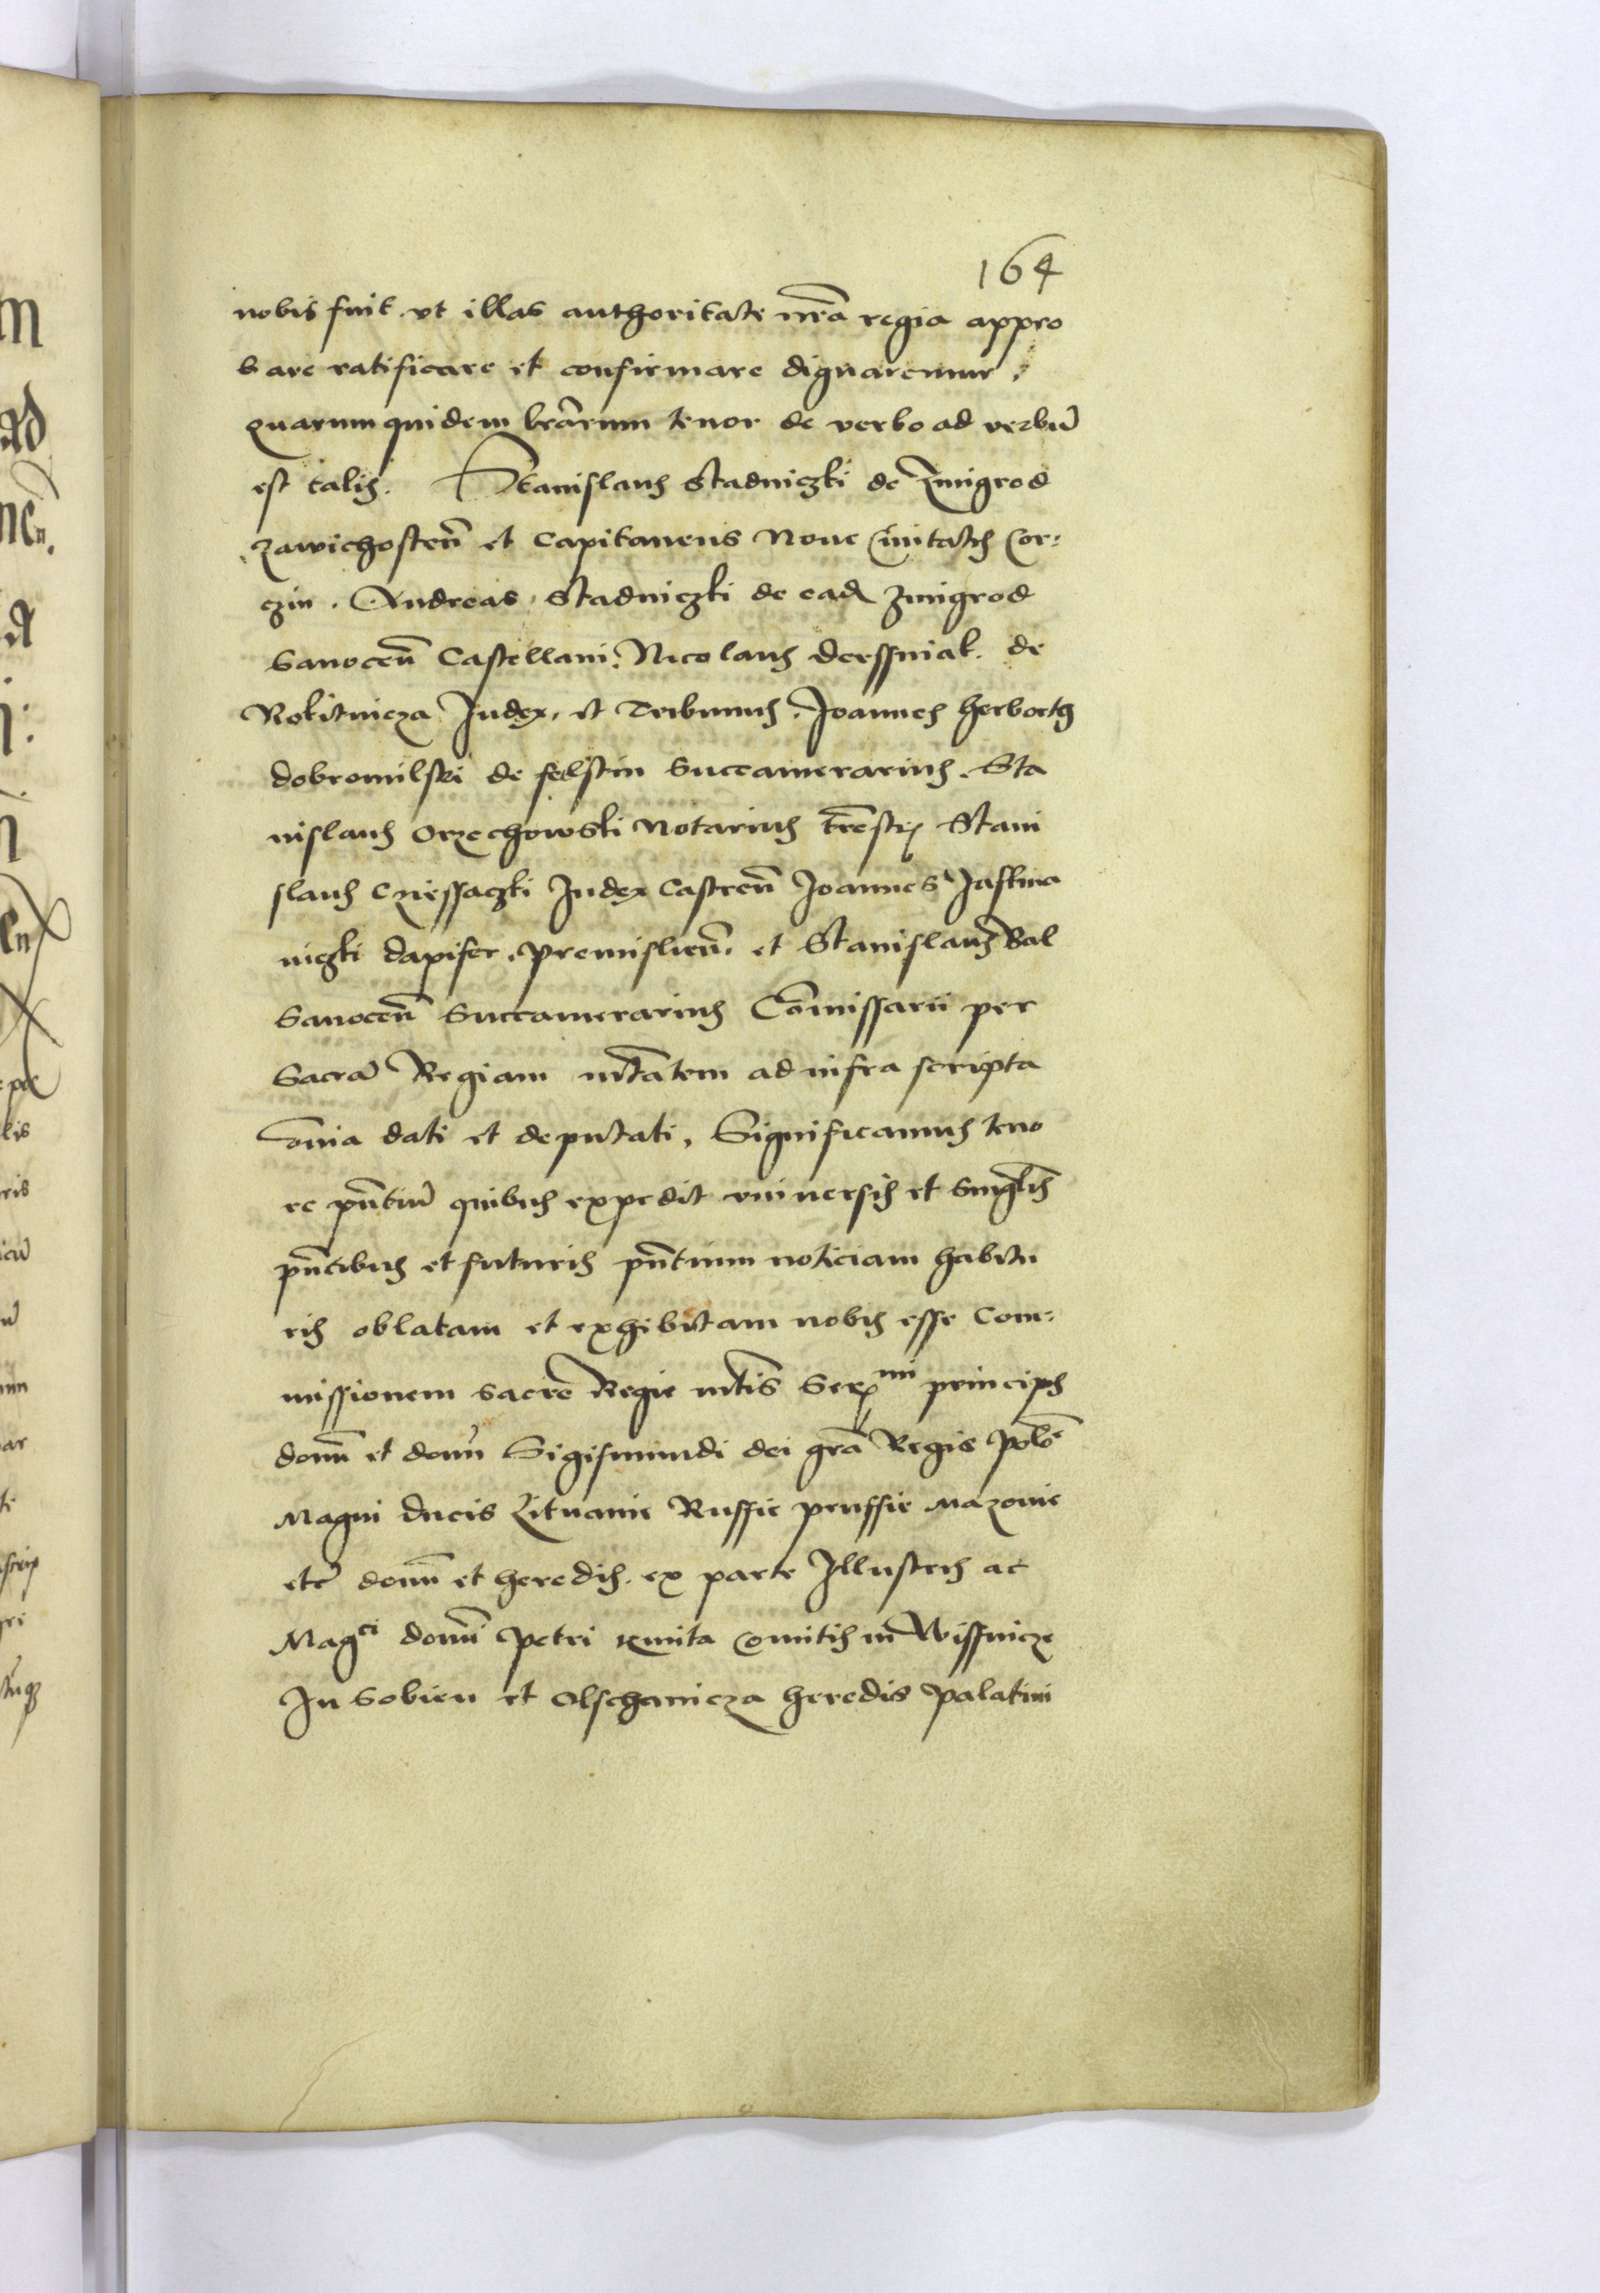 164
nobis fuit ut illas authoritate nr̃a regia appro
bare ratificare et confirmare dignaremur,
quarum quidem lrãrum tenor de verbo ad verbũ
est talis. Stanislaus Stadniczki de Zmigrod
zawichosteñ et Capitaneus Noue Ciuitatis Cor:
czin. Andreas Stadniczki de ead Zmigrod
Sanoceñ Castellani. Nicolaus Derssniak de
Rokitnicza Iudex, et Tribunus. Joannes herborth
dobromilski de felstin Succamerarius. Sta
nislaus Orzechowski Notarius trẽstris Stani
slaus Czessaczki Iudex Castreñ Joannes Jaskma
niczki dapifer premislieñ. et Stanislaus Bal
Sanoceñ Succamerarius Cõmissarii per
Sacrã Regiam mtãtem ad infra scripta
õmnia dati et deputati, Significamus teno
re pñtiũ quibus expedit vniuersis et singlis
pñtibus et futuris pñtium noticiam habitu
ris oblatam et exhibitam nobis esse Com:
missionem sacre Regie mtis Ser mi principis
domĩ et domĩ Sigismundi dei grã Regis Polõ
Magni ducis Lituanie Russie prussie Mazouie
etc̃ domĩ et heredis. ex parte Illustris ac
Mag ci domĩ Petri Kmita Comitis in Wissnicze
In Sobien et Olschanicza heredis Palatini